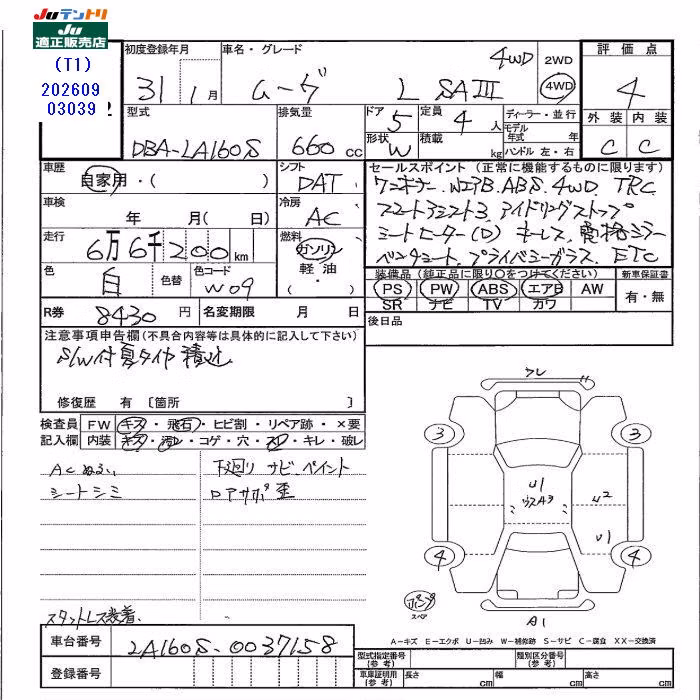 JUテントリ
JU
適正販売店
(T1)
202609
03039
初度登録年月
31年1月
車名・グレード
ムーヴ L SAⅢ 4WD
2WD
4WD
評価点
4
外装 内装
C C
型式
DBA-LA160S
排気量
660 cc
ドア 5
形状 W
定員 4 人
積載 kg
ディーラー・並行
モデル年式 年
ハンドル 左・右
車歴
自家用・( )
シフト
DAT
車検
年 月( 日)
冷房
AC
走行
6万6千200km
燃料
ガソリン
軽油
( )
色
白
色替
色コード
W09
R券
8430円
名変期限 月 日
セールスポイント(正常に機能するものに限ります)
ワンオーナー、WエアB、ABS、4WD、TRC
スマートアシスト3、アイドリングストップ
シートヒーター(D) キーレス、電格ミラー
ベンチシート、プライバシーガラス、ETC
装備品(純正品に限り○をつけてください)
PS PW ABS エアB AW
SR ナビ TV カワ
新車保証書
有・無
後日品
注意事項申告欄(不具合内容等は具体的に記入して下さい)
S/W付夏タイヤ積込
修復歴 有〔箇所 〕
検査員記入欄
FW キズ・飛石・ヒビ割・リペア跡・×要
内装 キズ・汚レ・コゲ・穴・スレ・キレ・破レ
ACぬるい
シートシミ
下廻り サビ、ペイント
ロアサポ歪
スタットレス装着
フレ
3 3
U1
ウスA3
U2
U1
4 4
スペア
A1
A-キズ E-エクボ U-凹み W-補修跡 S-サビ C-腐食 XX-交換済
車台番号
LA160S-0037158
登録番号
型式指定番号(参考)
類別区分番号(参考)
車庫証明用(参考)
長さ cm 幅 cm 高さ cm